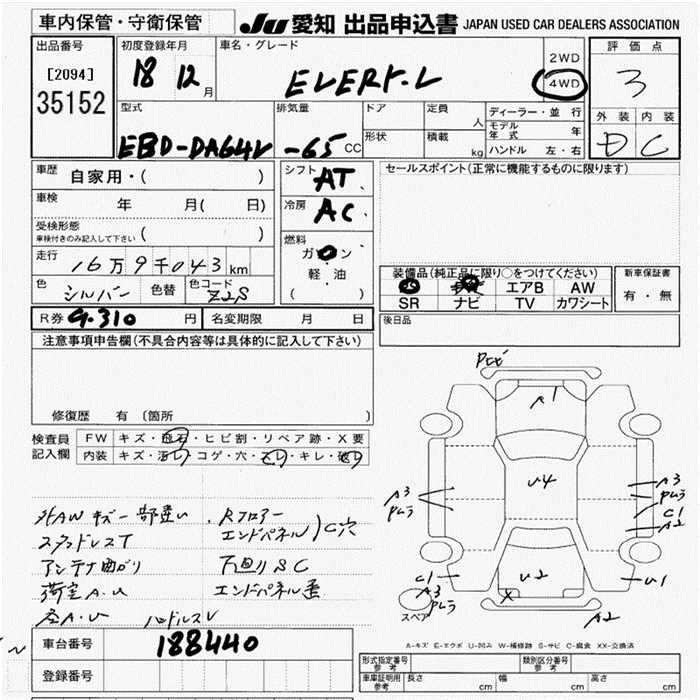 車内保管・守衛保管
JU 愛知 出品申込書 JAPAN USED CAR DEALERS ASSOCIATION
出品番号
[2094]
35152
初度登録年月
18 12 月
車名・グレード
2WD
4WD
評価点
3
外装 内装
D C
型式
EBD-DA64V
排気量
-65 CC
ドア
形状
定員 人
積載 kg
ディーラー・並行
モデル年式 年
ハンドル 左・右
車歴
自家用・( )
車検
年 月( 日)
受検形態
車検付きのみ記入して下さい ( )
走行
16万9千043 km
色
シルバー
色替
色コード
Z2S
シフト
AT
冷房
AC
燃料
ガソリン
軽・油
( )
セールスポイント(正常に機能するものに限ります)
装備品(純正品に限り○をつけてください)
エアB AW
SR ナビ TV カワシート
新車保証書
有・無
R券 9.310 円
名変期限 月 日
後日品
注意事項申告欄(不具合内容等は具体的に記入して下さい)
修復歴 有 (箇所 )
検査員記入欄
FW キズ・飛石・ヒビ割・リペア跡・X要
内装 キズ・汚レ・コゲ・穴・スレ・キレ・破レ
外AWキズ一部違い
スタッドレスT
アンテナ曲がり
荷室A.U
RフロアーエンドパネルC穴
下回りSC
エンドパネル歪
ハンドルスレ
車台番号
188440
登録番号
A1
U4
A3
A3
C1
A2
C1
A3
U2
X
U1
A2
スペア
A-キズ E-エクボ U-凹み W-補修跡 S-サビ C-腐食 XX-交換済
形式指定番号 参考
類別区分番号 参考
車庫証明用 参考
長さ cm
幅 cm
高さ cm